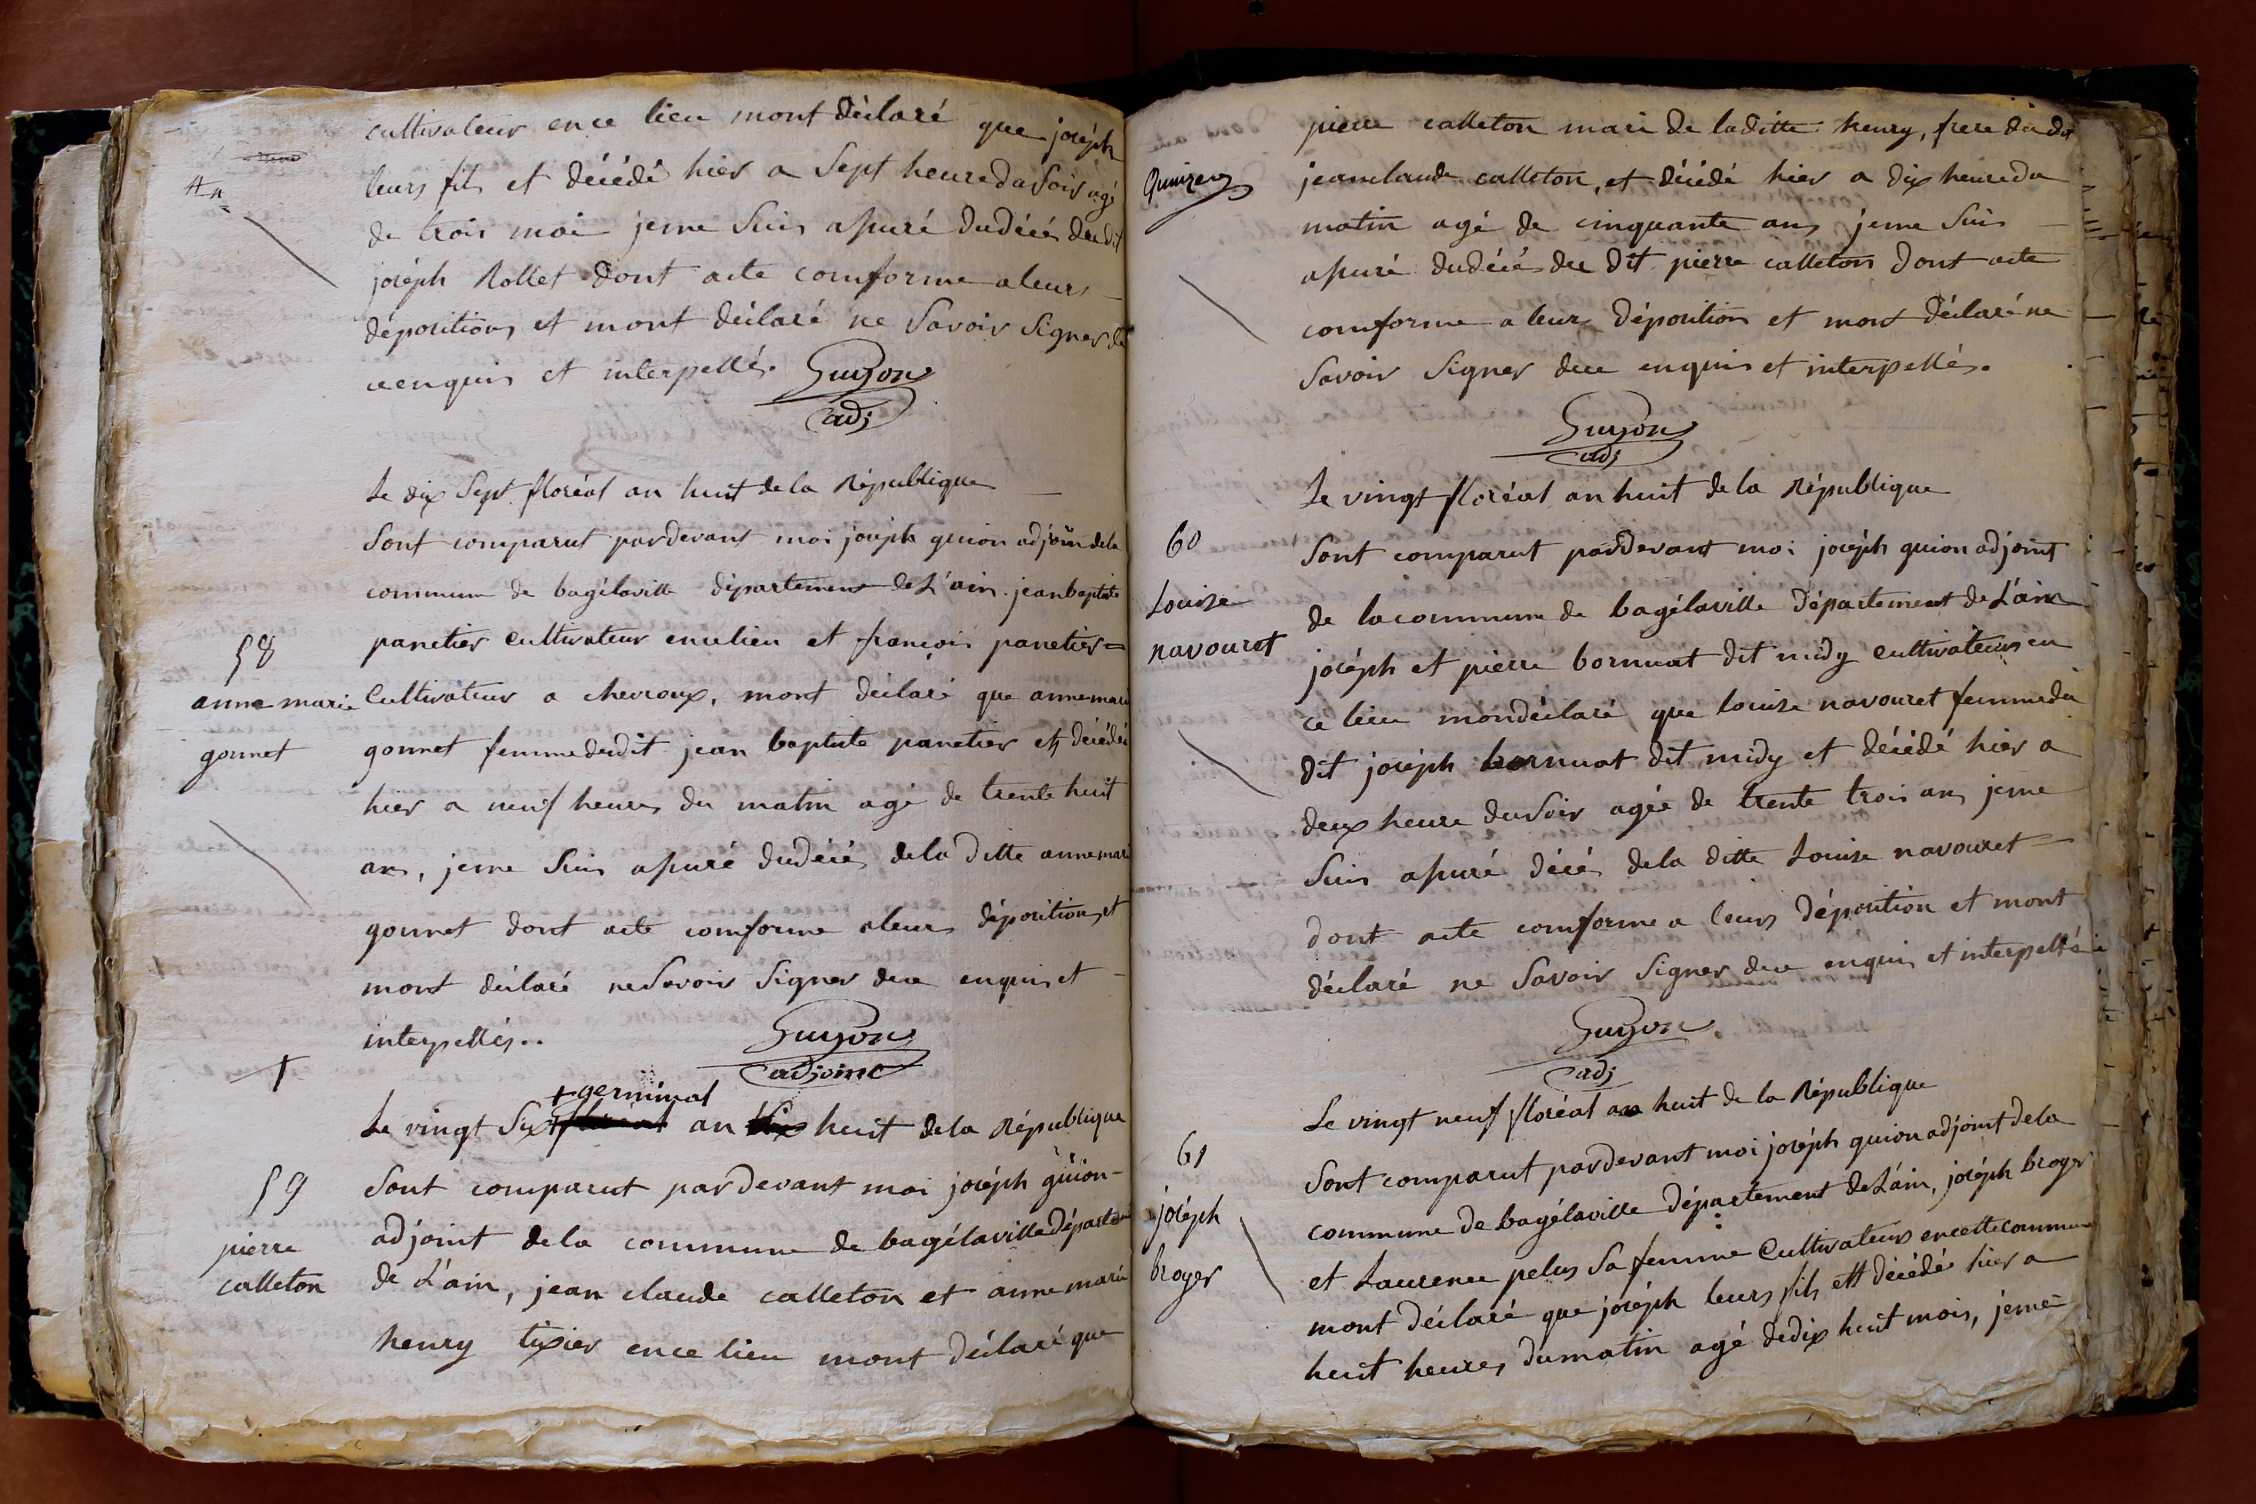 cultivateur en ce lieu mont déclaré que joséph
leurs fils et décédé hier a Sept heure du Soir agé
de trois moi jeme Suis assuré dudécés du dit
joséph Rollet dont acte comforme a leurs
dépositions et mont déclaré ne Savoir Signer de
ce enquis et interpellés.
Guyon
adj
Le dix Sept floréal an huit de la République
Sont comparut pardevant moi joséph guion adjoin dela
commune de bagélaville département de L'ain jean baptiste
panetier cultivateur encelieu et françois panetier
58
anne marie
gonnet
Cultivateur a chevroux, mont déclaré que anne marie
gonnet femme dudit jean baptiste panetier et décédée
hier a neuf heures du matin agé de trente huit
ans, jeme Suis assuré dudécés dela ditte anne marie
gonnet dont acte comforme a leurs dépositions et
mont déclaré ne Savoir Signer dece enquis et
interpellés..
Guyon
adjoint
+ germinal
Le vingt Six floréal an dix huit dela République
59
pierre
calleton
Sont comparut pardevant moi joséph guion
adjoint dela commune de bagélaville département
de L'ain, jean claude calleton et anne marie
henry tixier ence lieu mont déclaré que
pierre calleton mari de laditte henry, frere du dit
jeanclaude calleton, et décédé hier a dix heure du
matin agé de cinquante ans jeme Suis
assuré dudécés du dit pierre calleton dont acte
comforme a leurs déposition et mont déclaré ne
Savoir Signer dece enquis et interpellés.
Guyon
adj
Le vingt floréal an huit de la République
60
Louise
navouret
Sont comparut pardevant moi joséph guion adjoint
de la commune de bagélaville département de L'ain
joséph et pierre bornuat dit midy cultivateurs en
ce lieu mondéclaré que louise navouret femme du
dit joséph bornuat dit midy et décédé hier a
deux heure du Soir agée de trente trois ans jeme
Suis assuré décés dela ditte Louise navouret
dont acte comforme a leurs déposition et mont
déclaré ne Savoir Signer dece enquis et interpellé
Guyon
adj
Le vingt neuf floréal an huit de la République
61
joséph
broyer
Sont comparut pardevant moi joséph guion adjoint dela
commune de bagélaville département de L'ain, joséph broyer
et Laurence pelus Sa femme Cultivateurs encette commune
mont déclaré que joséph leurs fils est décédé hier a
huit heures dumatin agé dedix huit mois, jeme